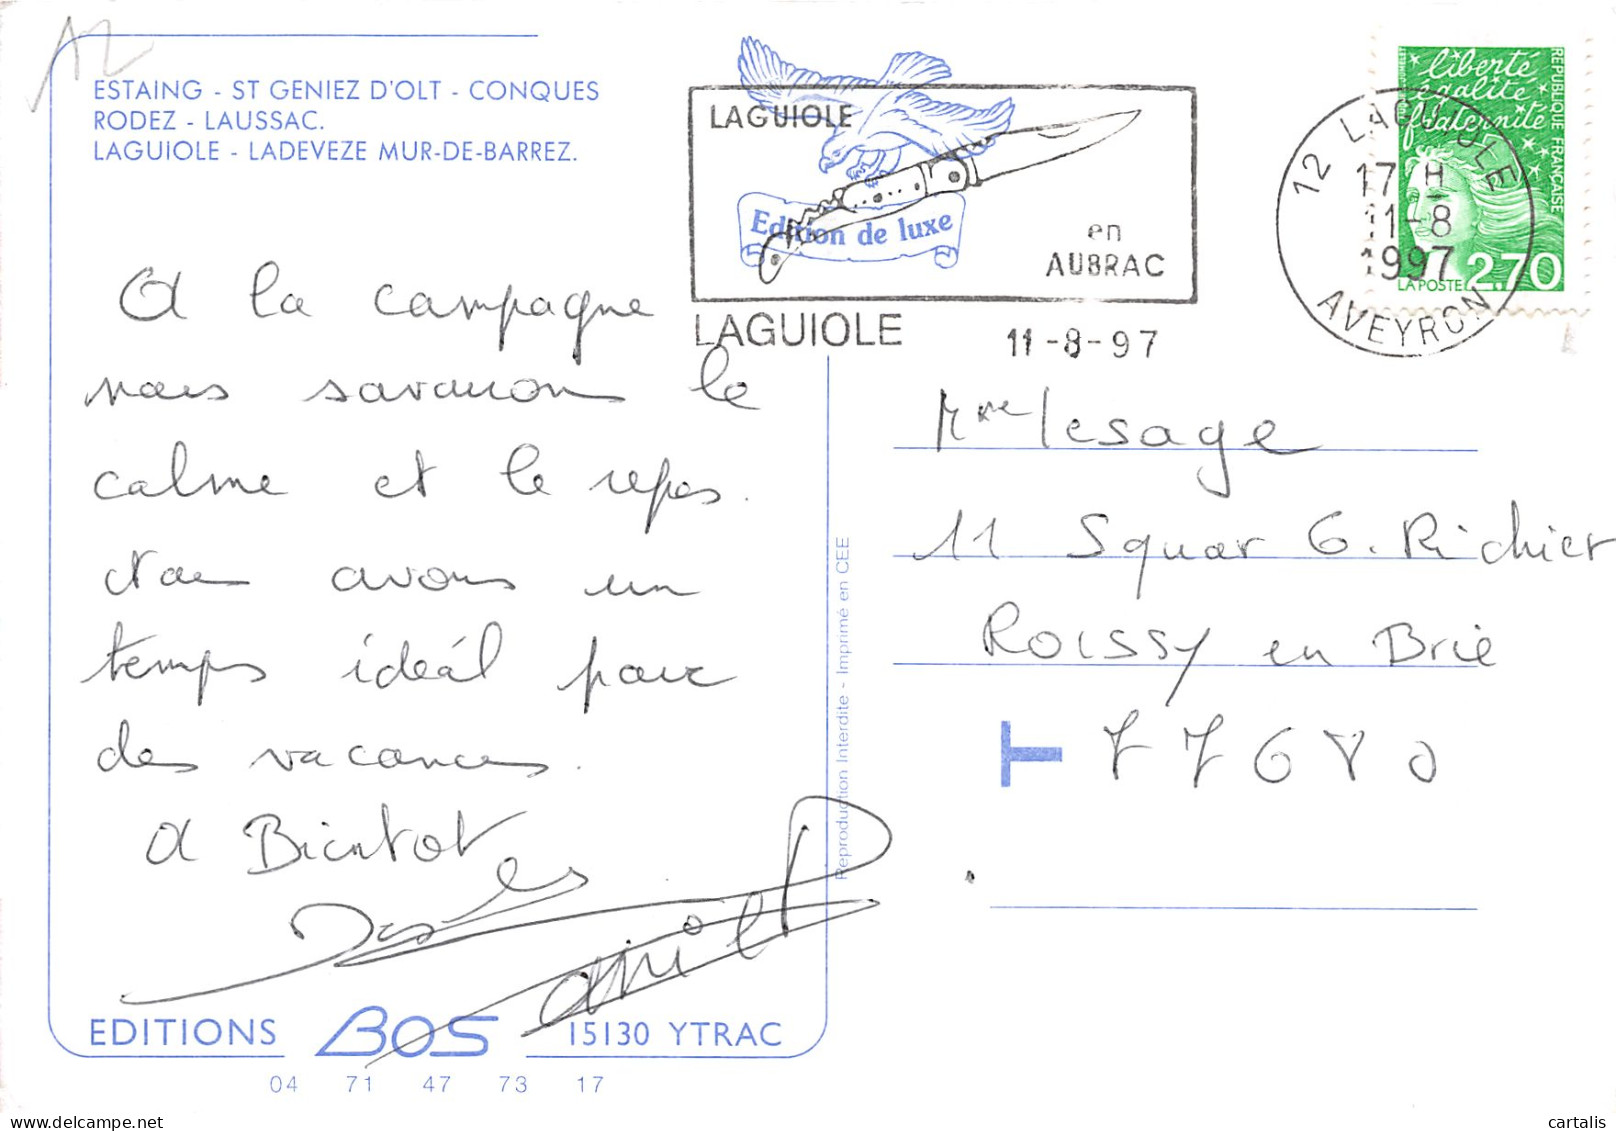 AZ
ESTAING - ST GENIEZ D'OLT - CONQUES
RODEZ - LAUSSAC.
LAGUIOLE - LADEVEZE MUR-DE-BARREZ.
LAGUIOLE
Edition de luxe
en
AUBRAC
LAGUIOLE
11-8-97
liberté
égalité
fraternité
REPUBLIQUE FRANÇAISE
LA POSTE 2,70
12 LAGUIOLE
17 H
11-8
1997
AVEYRON
A la campagne
nous savourons le
calme et le repos.
Nous avons un
temps idéal pour
des vacances.
A Bientot
Mme Lesage
11 Squar G. Richier
Roissy en Brie
T 77680
Reproduction Interdite - Imprimé en CEE
EDITIONS BOS 15130 YTRAC
04 71 47 73 17
cartalis